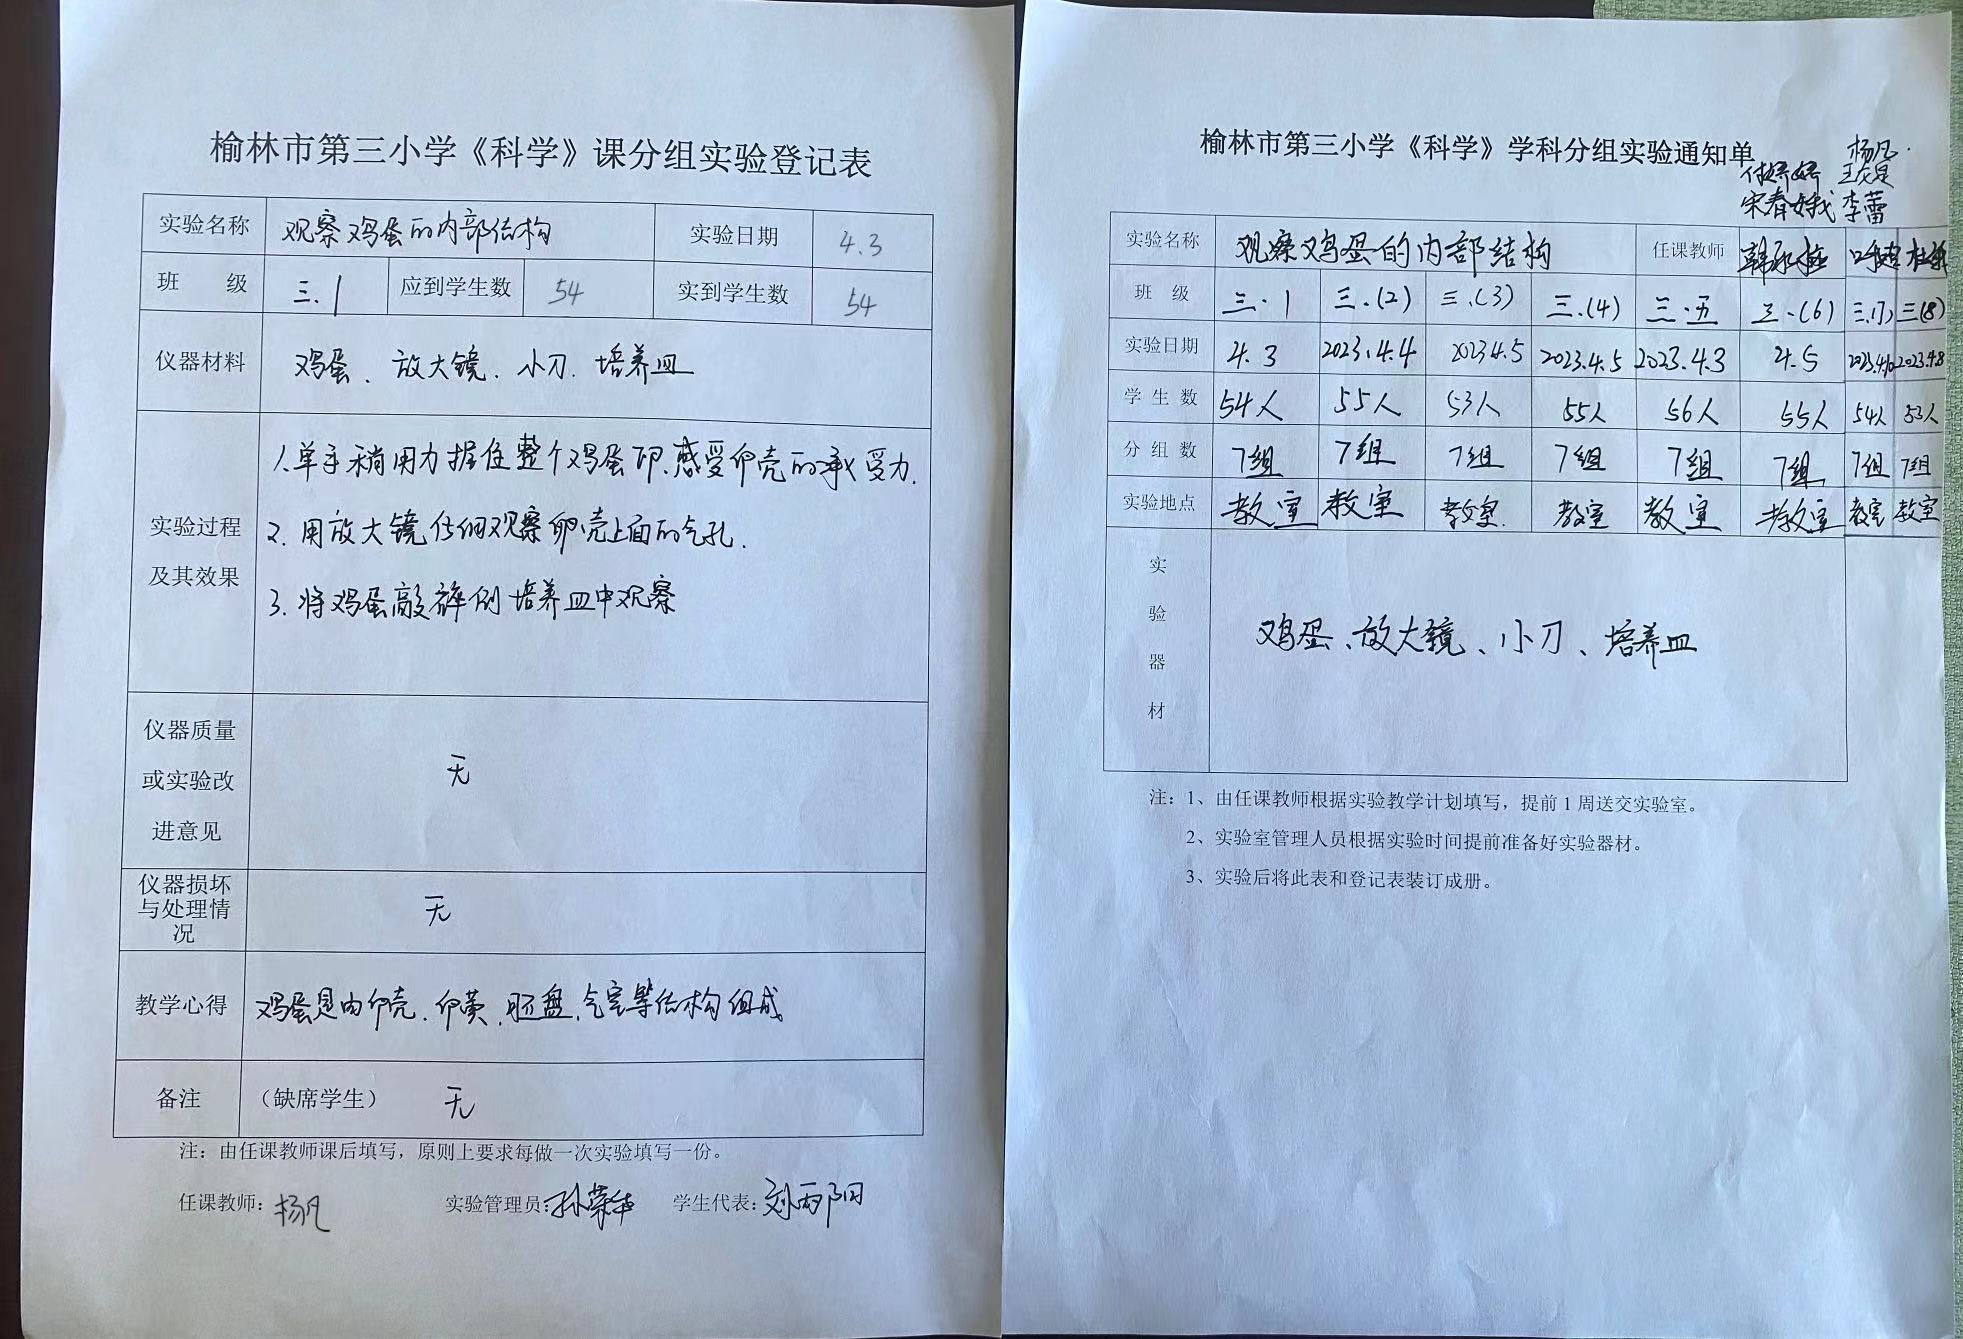 榆林市第三小学《科学》课分组实验登记表
实验名称 观察鸡蛋的内部结构 实验日期 4.3
班 级 三.1 应到学生数 54 实到学生数 54
仪器材料 鸡蛋、放大镜、小刀、培养皿
实验过程
及其效果
1.单手稍用力握住整个鸡蛋即.感受卵壳的承受力.
2.用放大镜仔细观察卵壳上面的气孔.
3.将鸡蛋敲碎倒培养皿中观察
仪器质量
或实验改
进意见
无
仪器损坏
与处理情
况
无
教学心得 鸡蛋是由卵壳、卵黄、胚盘、气室等结构组成
备注 （缺席学生） 无
注：由任课教师课后填写，原则上要求每做一次实验填写一份。
任课教师：杨凡 实验管理员：孙荣华 学生代表：刘雨阳
榆林市第三小学《科学》学科分组实验通知单
杨凡.
付婷婷
宋春娥 李蕾
实验名称 观察鸡蛋的内部结构 任课教师
班 级 三.1 三.(2) 三.(3) 三.(4) 三.五 三.(6) 三.(7) 三(8)
实验日期 4.3 2023.4.4 2023 4.5 2023.4.5 2023.4.3 4.5 2023.4.8
学 生 数 54人 55人 53人 55人 56人 55人 54人 53人
分 组 数 7组 7组 7组 7组 7组 7组 7组 7组
实验地点 教室 教室 教室. 教室 教室 教室 教室 教室
实
验
器
材
鸡蛋、放大镜、小刀、培养皿
注：1、由任课教师根据实验教学计划填写，提前 1 周送交实验室。
2、实验室管理人员根据实验时间提前准备好实验器材。
3、实验后将此表和登记表装订成册。